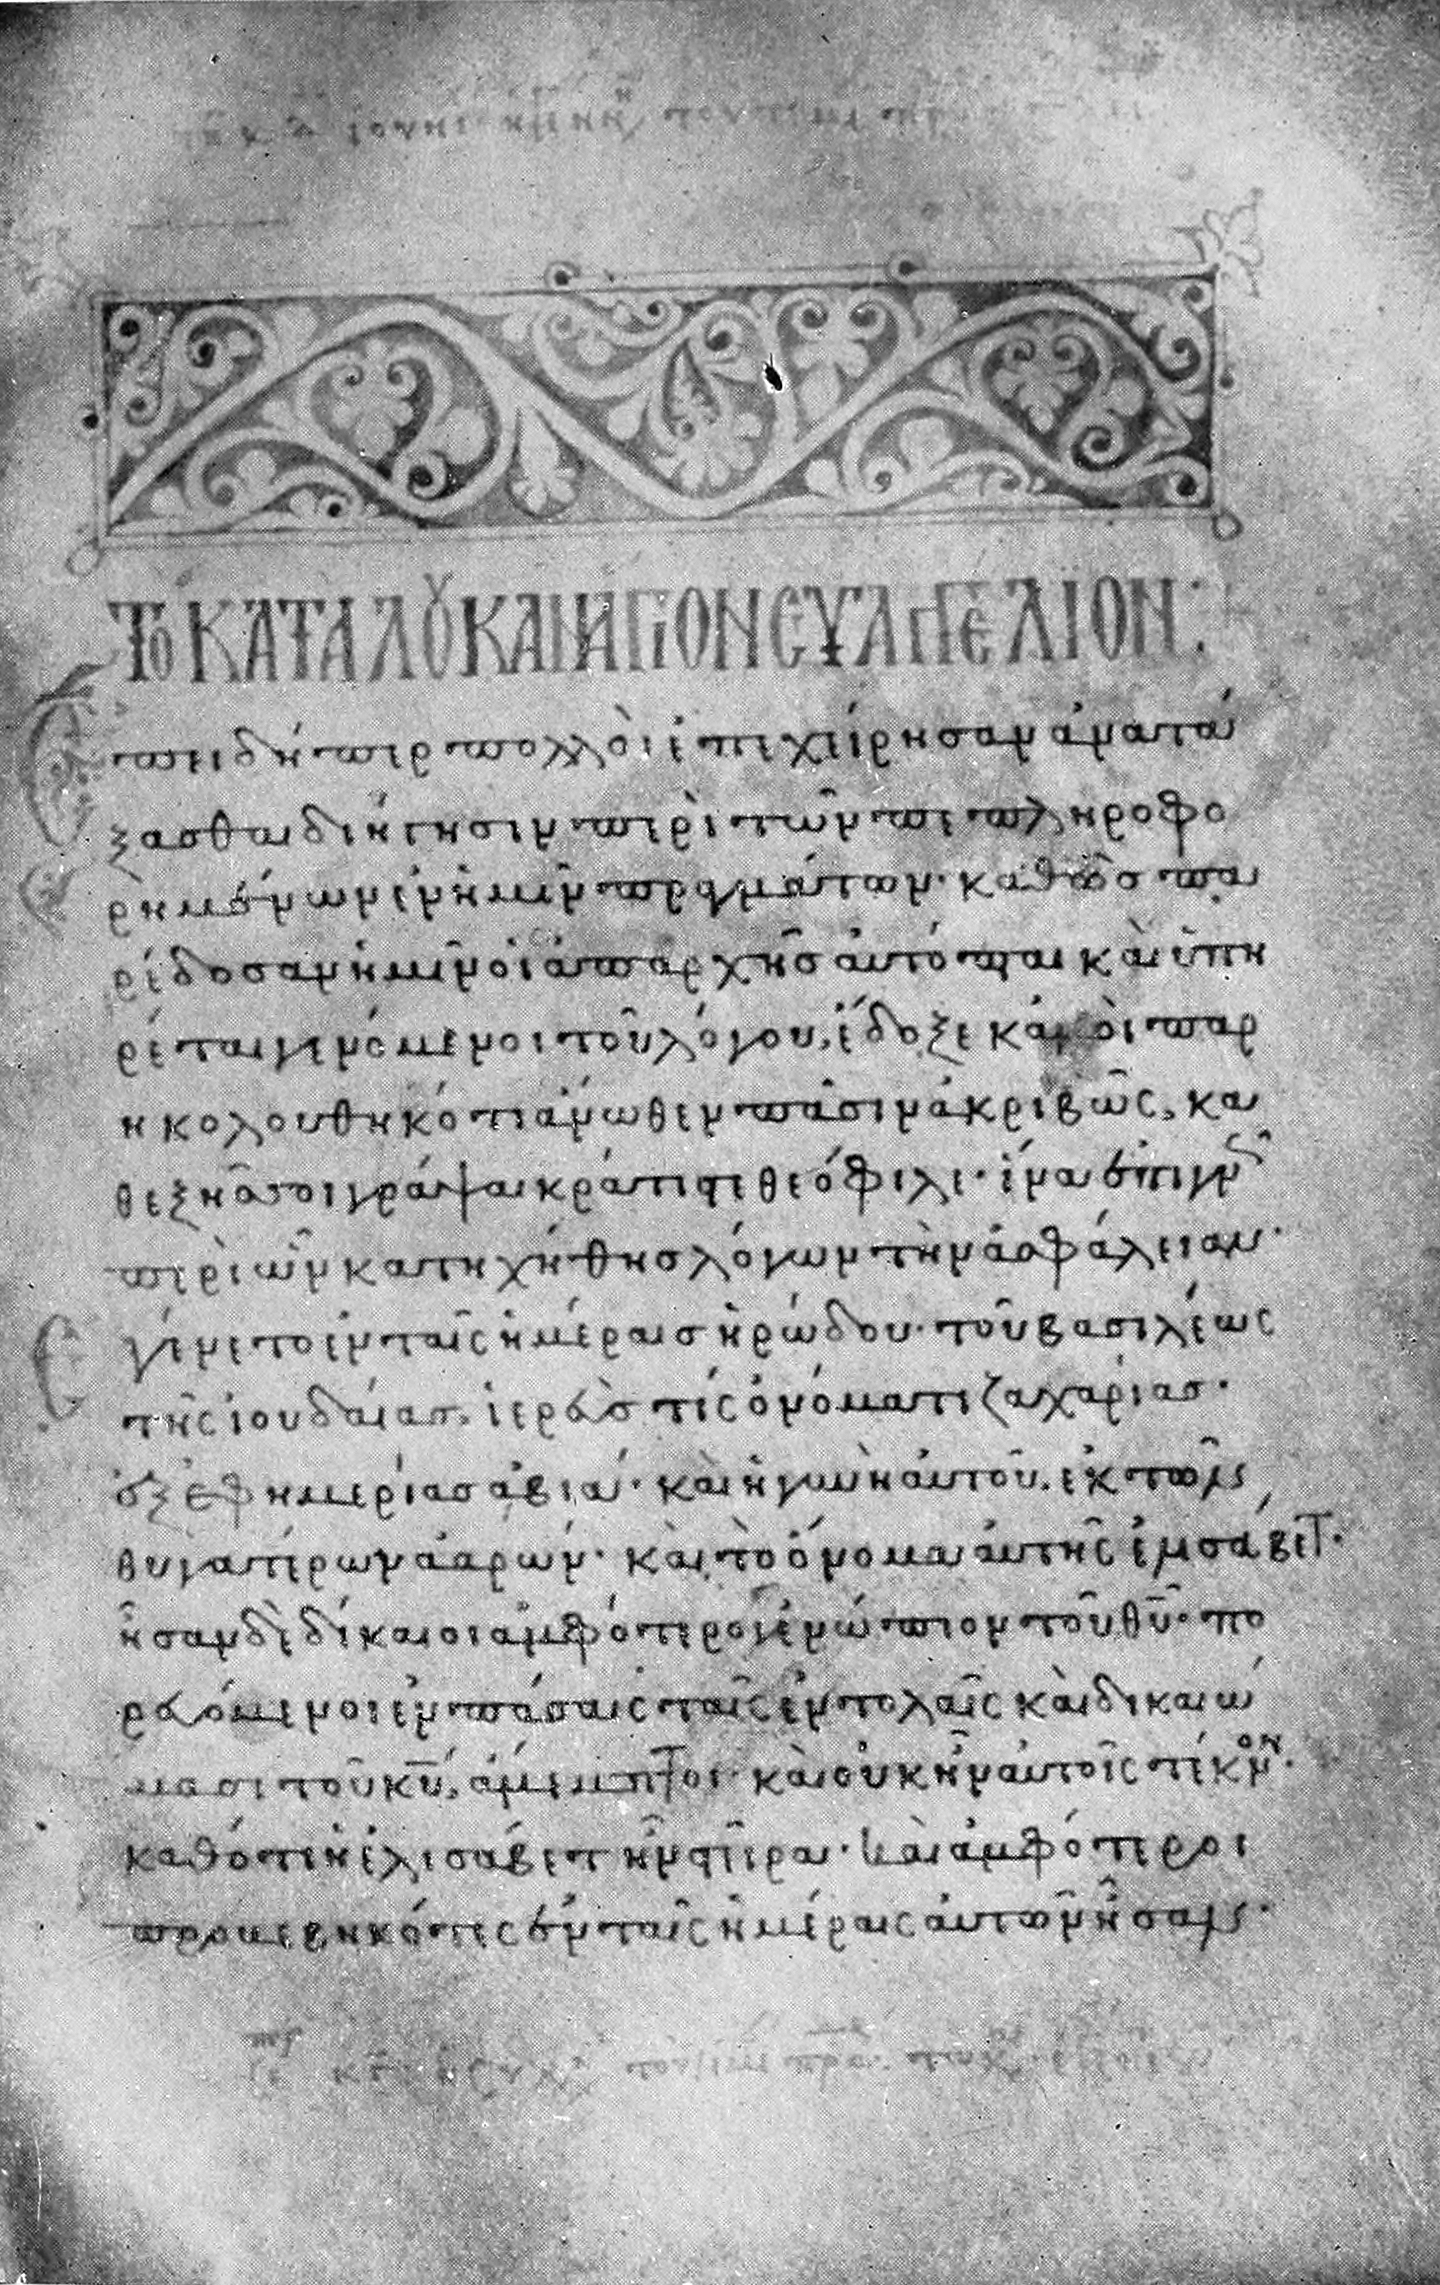 ΤΟ ΚΑΤΑ ΛΟΥΚΑΝ ΑΓΙΟΝ ΕΥΑΓΓΕΛΙΟΝ:
Επειδήπερ πολλὸι ἐπιχείρησαν ἀνατά
ξασθαι διήγησιν περὶ τῶν πεπληροφο
ρημένων ἐν ἡμῖν πραγμάτων· καθὼς πα
ρέδοσαν ἡμῖν οἱ ἀπαρχῆς ἀυτόπται κὰι ὑπη
ρέται γενόμενοι τοῦ λόγου, ἔδοξε κἀμοὶ παρ
ηκολουθηκότι ἄνωθεν πᾶσιν ἀκριβῶς, κα
θεξῆς σοι γράψαι κράτιστε θεόφιλε· ἵνα ἐπιγν
περὶ ὧν κατηχήθης λόγων τὴν ἀσφάλειαν·
Εγένετο ἐν ταῖς ἡμέραις ἡρώδου· τοῦ βασιλέως
τῆς ἰουδαίας, ἱερεύς τίς ὀνόματι ζαχαρίας·
ἐξ ἐφημερίας ἀβιά· κὰι ἡ γυνὴ ἀυτοῦ, ἐκ τῶν
θυγατέρων ἀαρών· κὰι τὸ ὄνομα ἀυτῆς ἐλισάβετ·
ἦσαν δὲ δίκαιοι ἀμφότεροι ἐνώπιον τοῦ θῦ· πο
ρευόμενοι ἐν πάσαις ταῖς ἐντολαῖς κὰι δικαιώ
μασι τοῦ κῦ, ἄμεμπτοι· κὰι οὐκ ἦν ἀυτοῖς τέκνον·
καθότι ἡ ἐλισάβετ ἦν στεῖρα· κὰι ἀμφότεροι
προβεβηκότες ἐν ταῖς ἡμέραις ἀυτῶν ἦσαν·